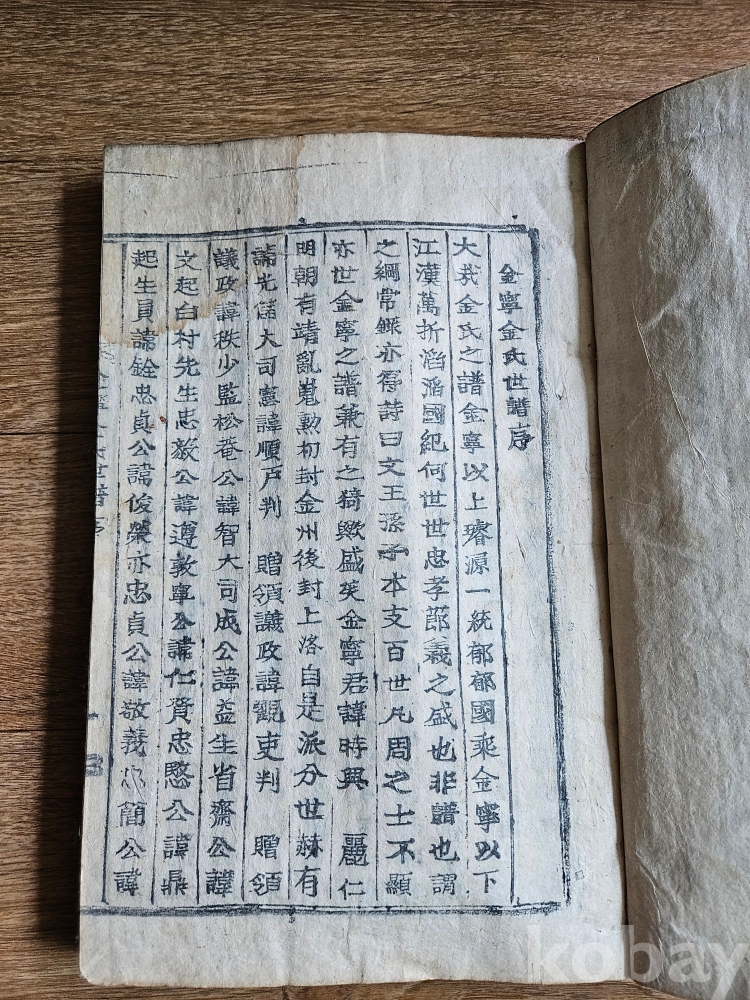 金寧金氏世譜序
大哉金氏之譜金寧以上璿源一統郁郁國乘金寧以下
江漢萬折滔滔國紀何世世忠孝節義之盛也非譜也謂
之綱常錄亦得詩曰文王孫子本支百世凡周之士不顯
亦世金寧之譜兼有之猗歟盛矣金寧君諱時興 麗仁
明朝有靖亂嵬勳初封金州後封上洛自是派分世赫有
諱光儲大司憲諱順戶判 贈領議政諱觀吏判 贈領
議政諱秩少監松菴公諱智大司成公諱益生省齋公諱
文起白村先生忠毅公諱遵敦寧公諱仁賫忠愍公諱鼎
起生員諱銓忠貞公諱俊榮亦忠貞公諱敬義 簡公諱
kobay